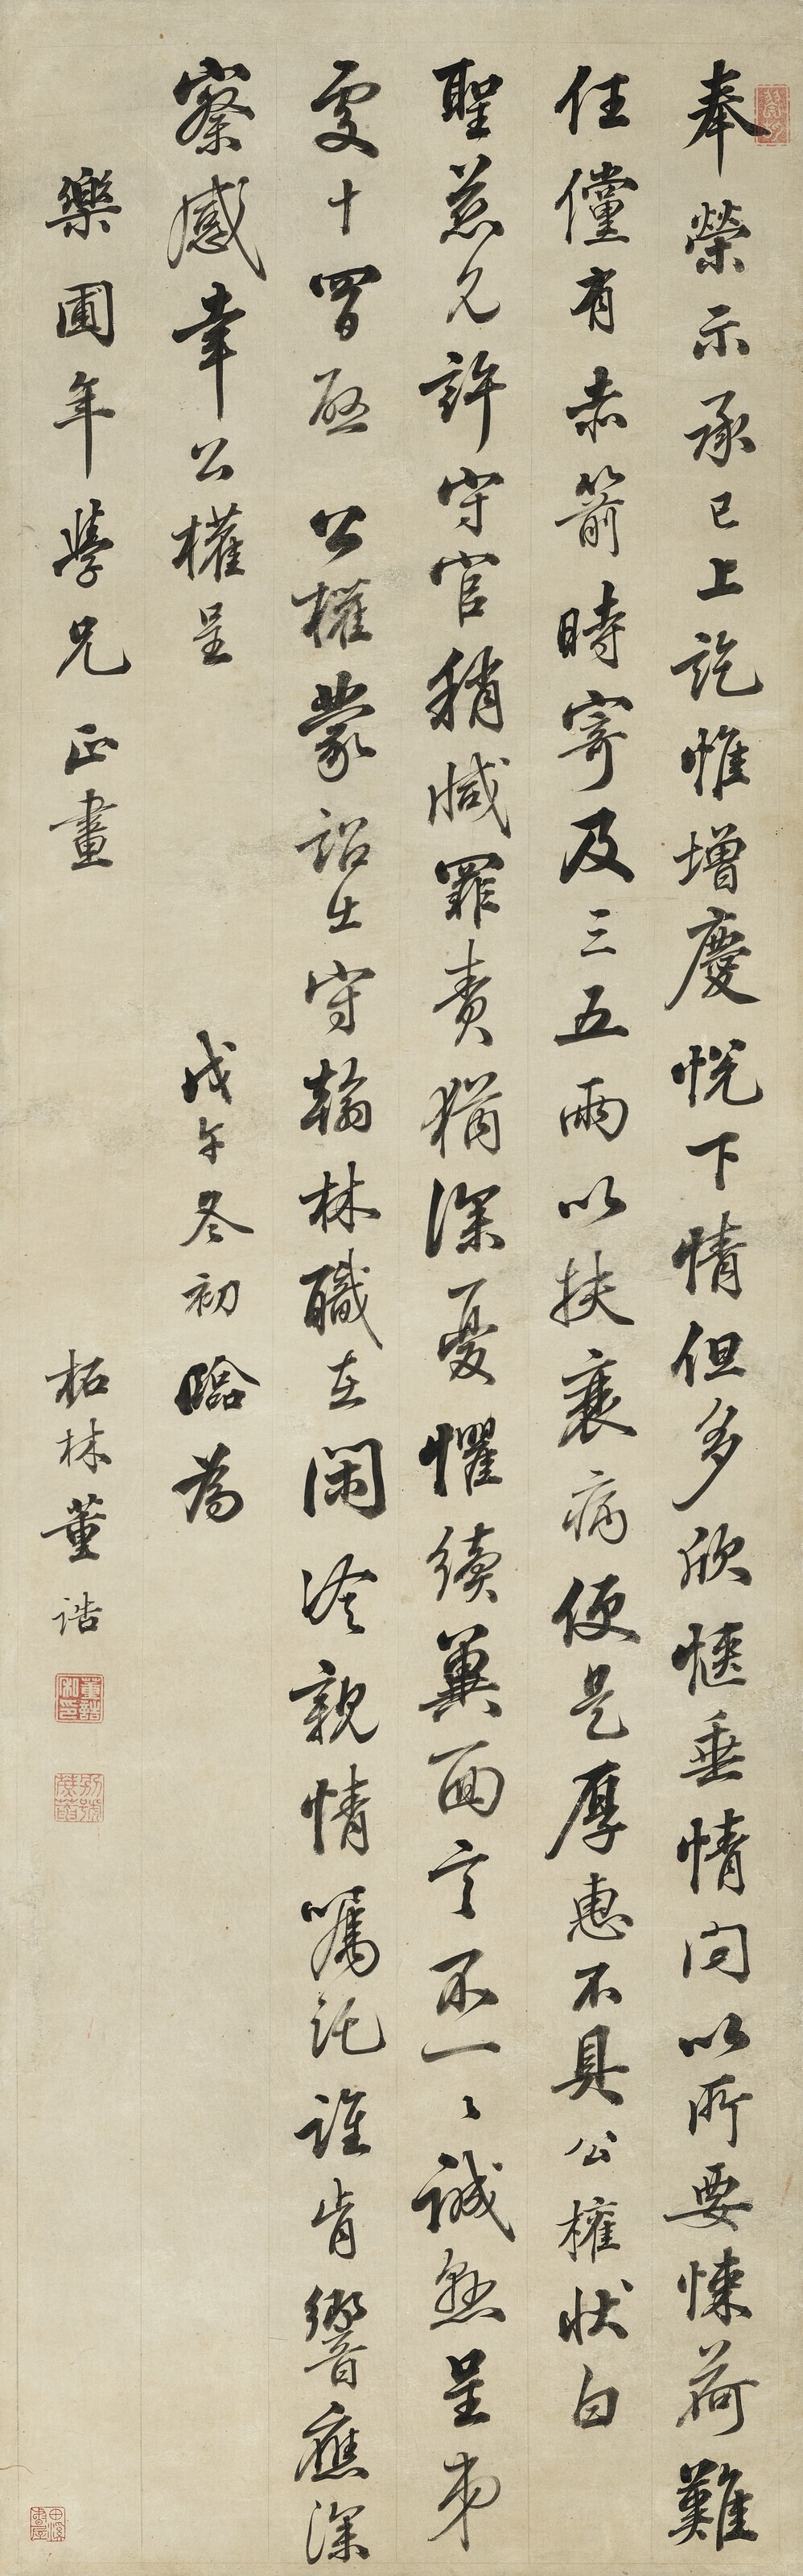 奉榮示承已上訖惟增慶悅下情但多欣愜垂情問以所要悚荷難
任儻有赤箭時寄及三五兩以扶衰病便是厚惠不具公權狀白
聖慈允許守官稍減罪責猶深憂懼續冀面言不一〻誠懸呈弟
哥啟公權蒙詔出守翰林職在閑冷親情囑託誰肯響應深
察感幸公權呈
戊午冬初臨為
樂圃年學兄正畫
柘林董誥
董誥私印
別號蔗林